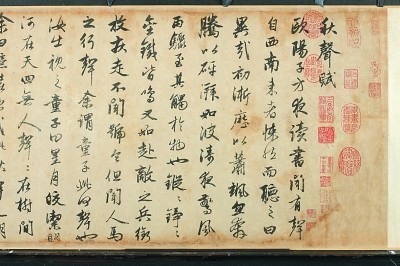 秋聲賦
歐陽子方夜讀書聞有聲
自西南來者悚然而聽之曰
異哉初淅瀝以蕭颯忽奔
騰以砰湃如波濤夜驚風
雨驟至其觸於物也鏦〻錚〻
金鐵皆鳴又如赴敵之兵銜
枚疾走不聞號令但聞人馬
之行聲余謂童子此何聲也
汝出視之童子曰星月皎潔明
河在天四無人聲〻在樹間
余曰噫嘻悲哉此